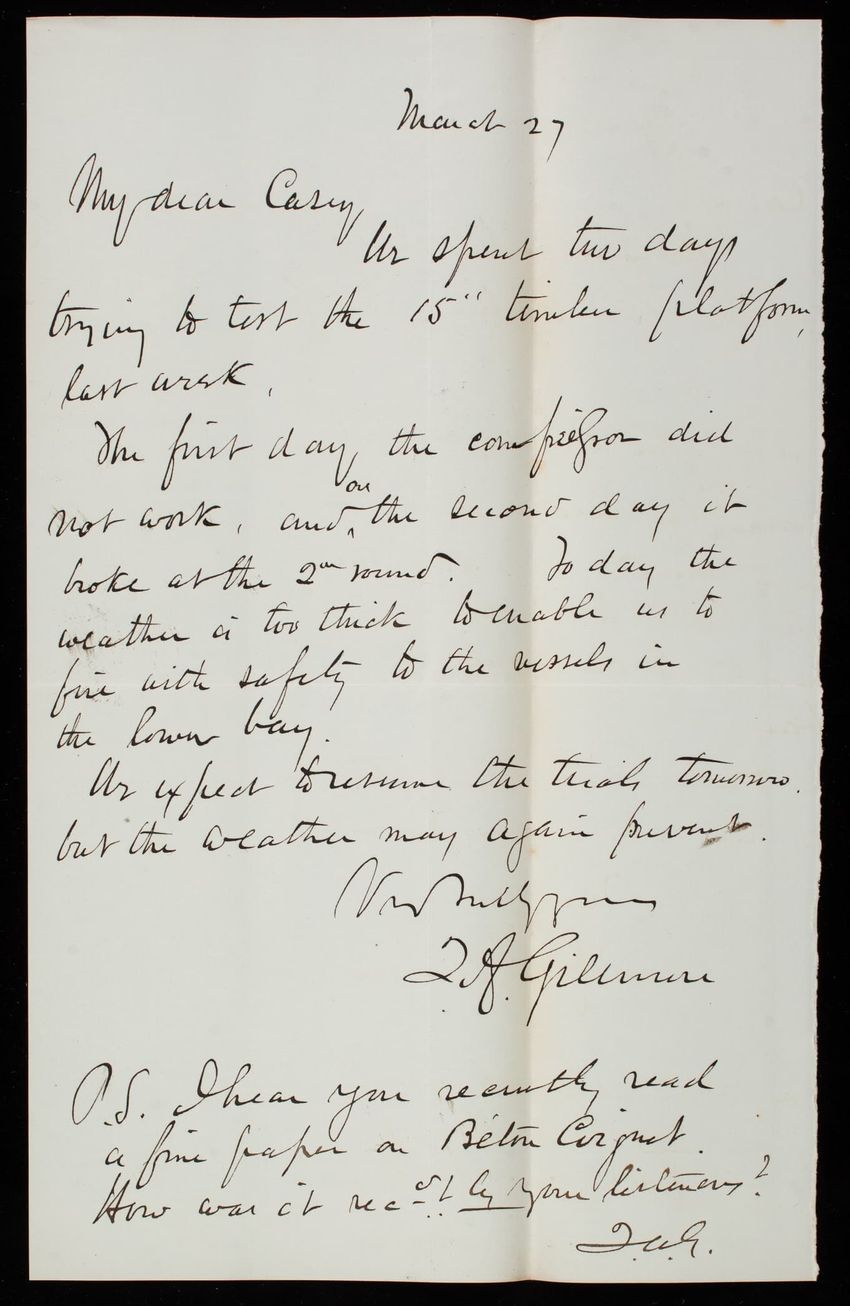 March 27
My dear Casey,
We spent two days
trying to test the 15" timber platform,
last week.
The first day, the did
not work, and on the second day it
broke at the 2nd round. To day the
weather is too thick to enable us to
fire with safety to the vessels in
the lower bay.
We expect to resume the trials tomorrow.
but the weather may again prevent.
Very truly yours
Q. A. Gillmore
P.S. I hear you recently read
a fine paper on Béton Coignet.
How was it rec'd by your listeners?
Q.A.G.